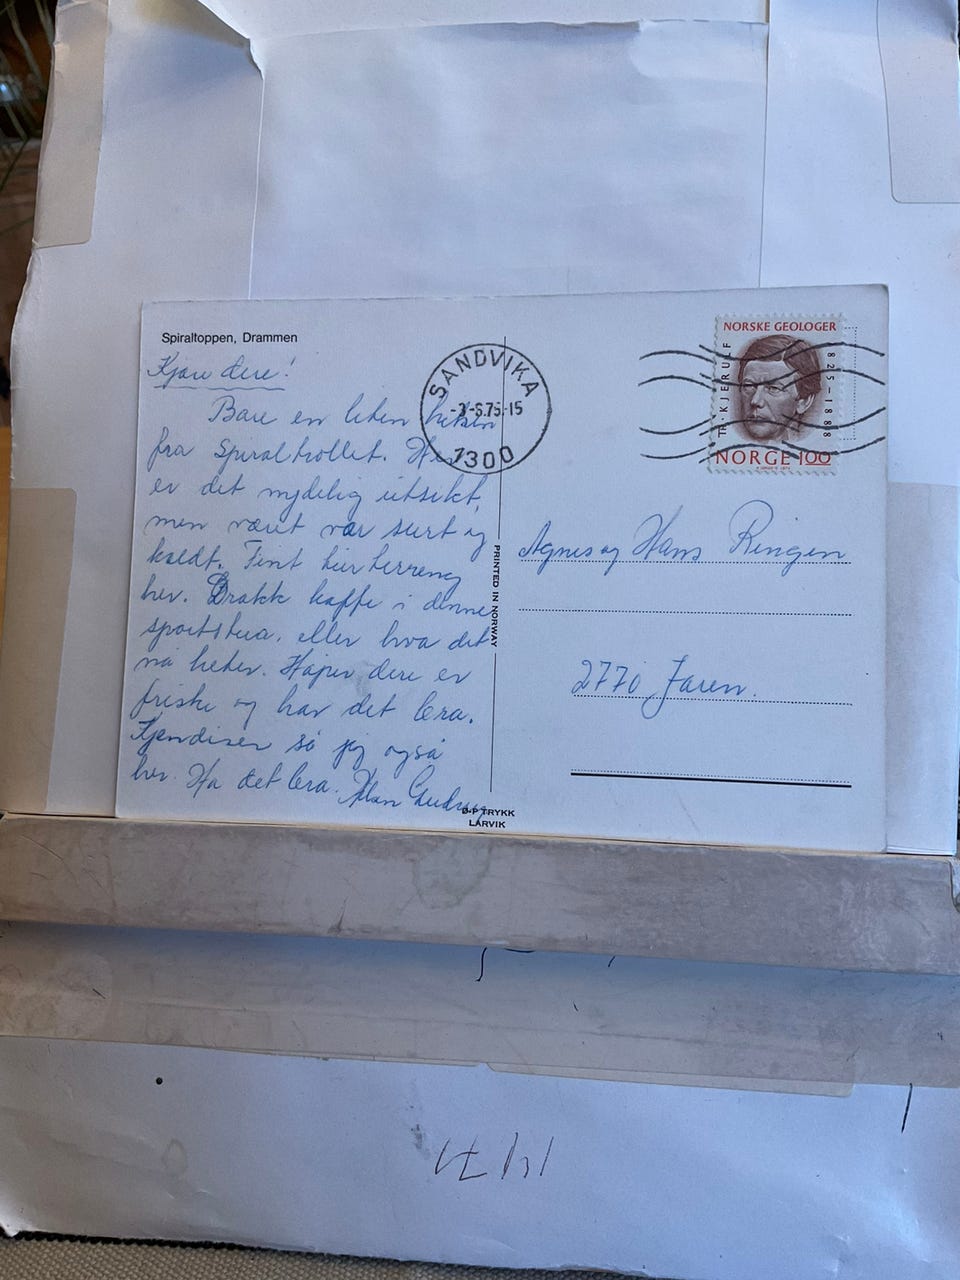 Spiraltoppen, Drammen
Kjære dere!
Bare en liten hilsen
fra Spiraltrollet. Her
er det nydelig utsikt,
men været var surt og
kaldt. Fint turterreng
her. Drakk kaffe i denne
sportstua, eller hva det
nå heter. Håper dere er
friske og har det bra.
Kjendisen så jeg også
her. Ha det bra. Gudrun
SANDVIKA
-6.75-15
1300
NORSKE GEOLOGER
TH. KJERULF
1825-1888
NORGE 100
PRINTED IN NORWAY
Agnes og Hans Ringen
2770 Jaren.
Ø-P TRYKK
LARVIK